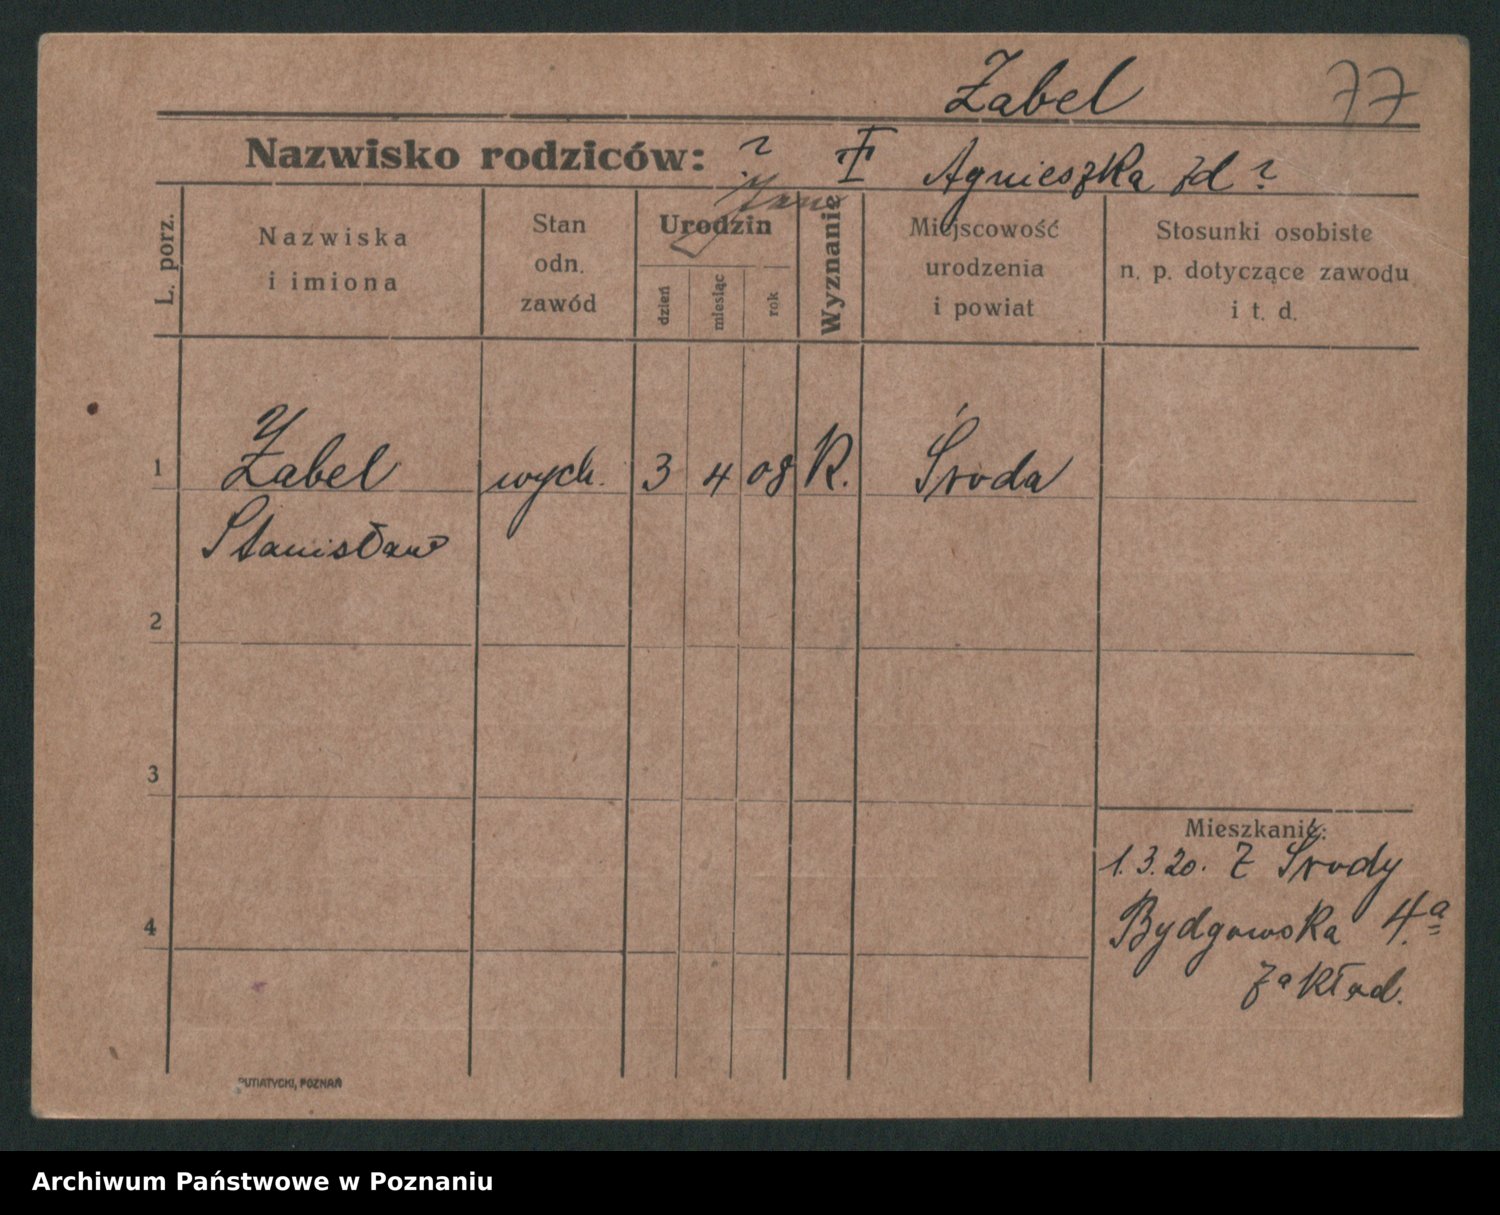 Zabel 77
Nazwisko rodziców: ? I Agnieszka zd ?
L. porz.
Nazwiska
i imiona
Stan
odn.
zawód
Urodzin
dzień
miesiąc
rok
Wyznanie
Miejscowość
urodzenia
i powiat
Stosunki osobiste
n. p. dotyczące zawodu
i t. d.
1 Zabel wych. 3 4 08 R. Środa
Stanisław
2
3
4
Mieszkanie:
1.3.20. Z Środy
Bydgowska 4.a
zakład.
PUTIATYCKI, POZNAŃ
Archiwum Państwowe w Poznaniu